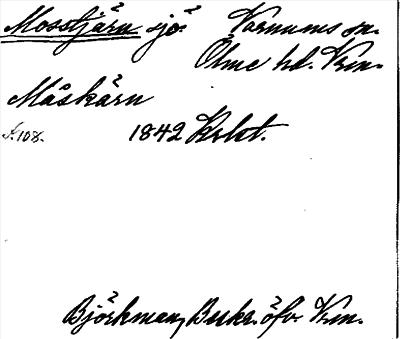 Mosstjärn sjö Varnums sn.
Ölme hd. Vrm.
Måskärn
s. 108. 1842 Krlst.
Björkman, Beskr. öfv. Vrm.